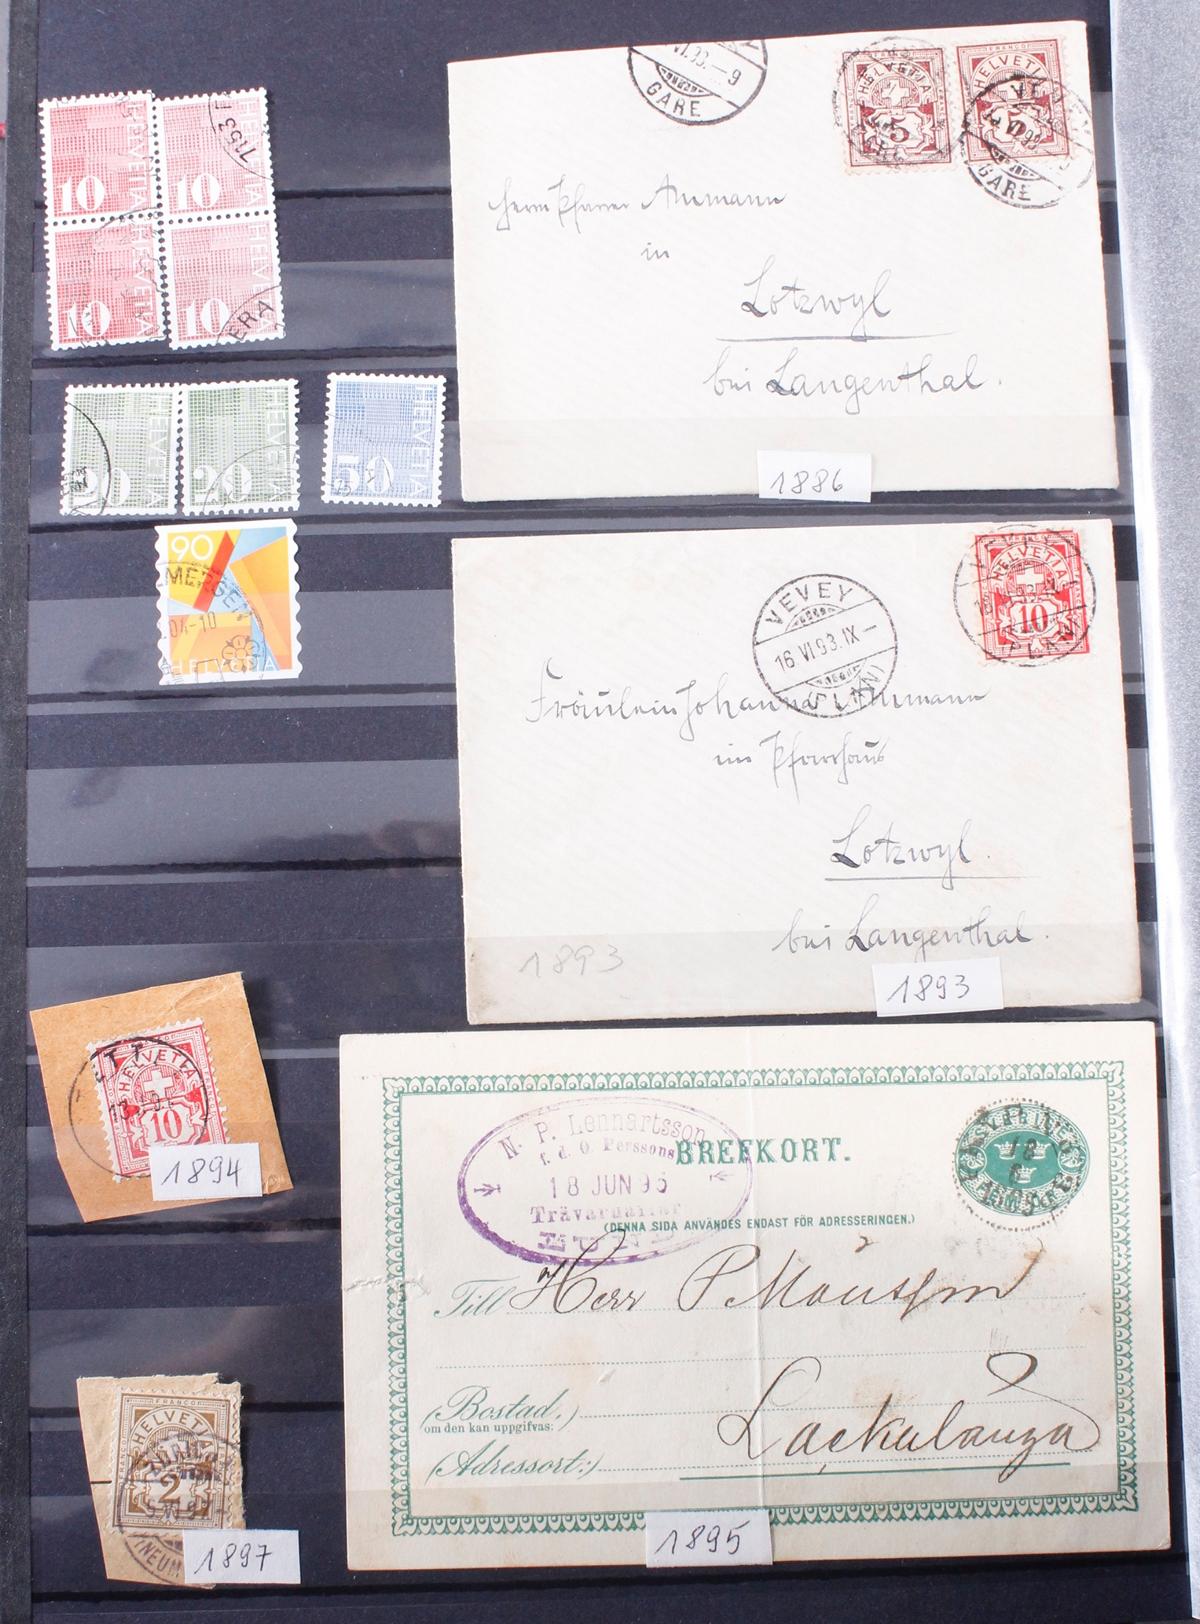 10
HELVETIA
10
HELVETIA
7153
10
HELVETIA
10
HELVETIA
ERA
20
HELVETIA
20
HELVETIA
50
HELVETIA
90
MERGEN
04-10
HELVETIA
GARE
HELVETIA
5
FRANCO
HELVETIA
5
GARE
Herrn Pfarrer Ammann
in
Lotzwyl
bei Langenthal.
1886
VEVEY
16 VI 93. IX –
(PLAN)
HELVETIA
10
(PLAN)
Fräulein Johanna Ammann
im Pfarrhaus
Lotzwyl.
bei Langenthal.
1893
1893
HELVETIA
10
1894
N. P. Lennartsson
f. d. O. Perssons
18 JUN 95
Trävaruaffär
LUND
BREFKORT.
(DENNA SIDA ANVÄNDES ENDAST FÖR ADRESSERINGEN.)
Till Herr P Månsson
(Bostad,)
om den kan uppgifvas:
(Adressort:)
Lackalänga
1895
FRANCO
HELVETIA
2
1897